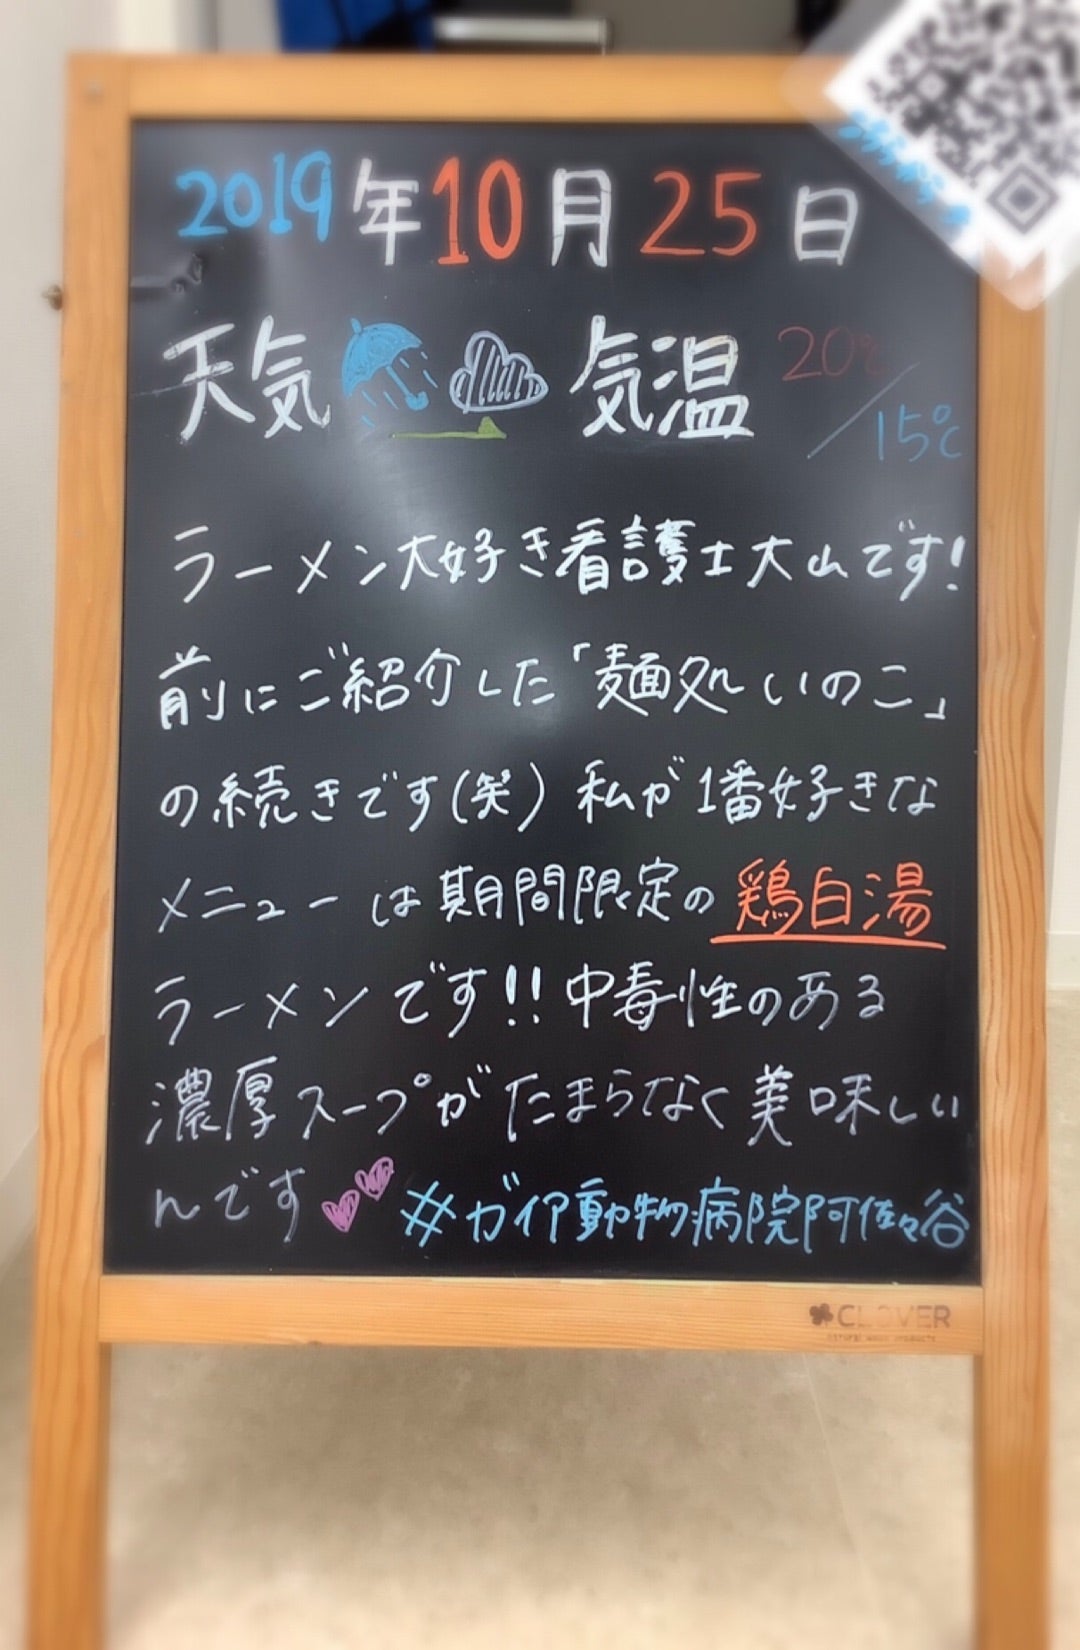 2019年10月25日
天気 気温 20℃/15℃
ラーメン大好き看護士大山です!
前にご紹介した「麺処いのこ」
の続きです(笑) 私が1番好きな
メニューは期間限定の鶏白湯
ラーメンです!!中毒性のある
濃厚スープがたまらなく美味しい
んです #ガイア動物病院阿佐々谷
CLOVER
natural wood products